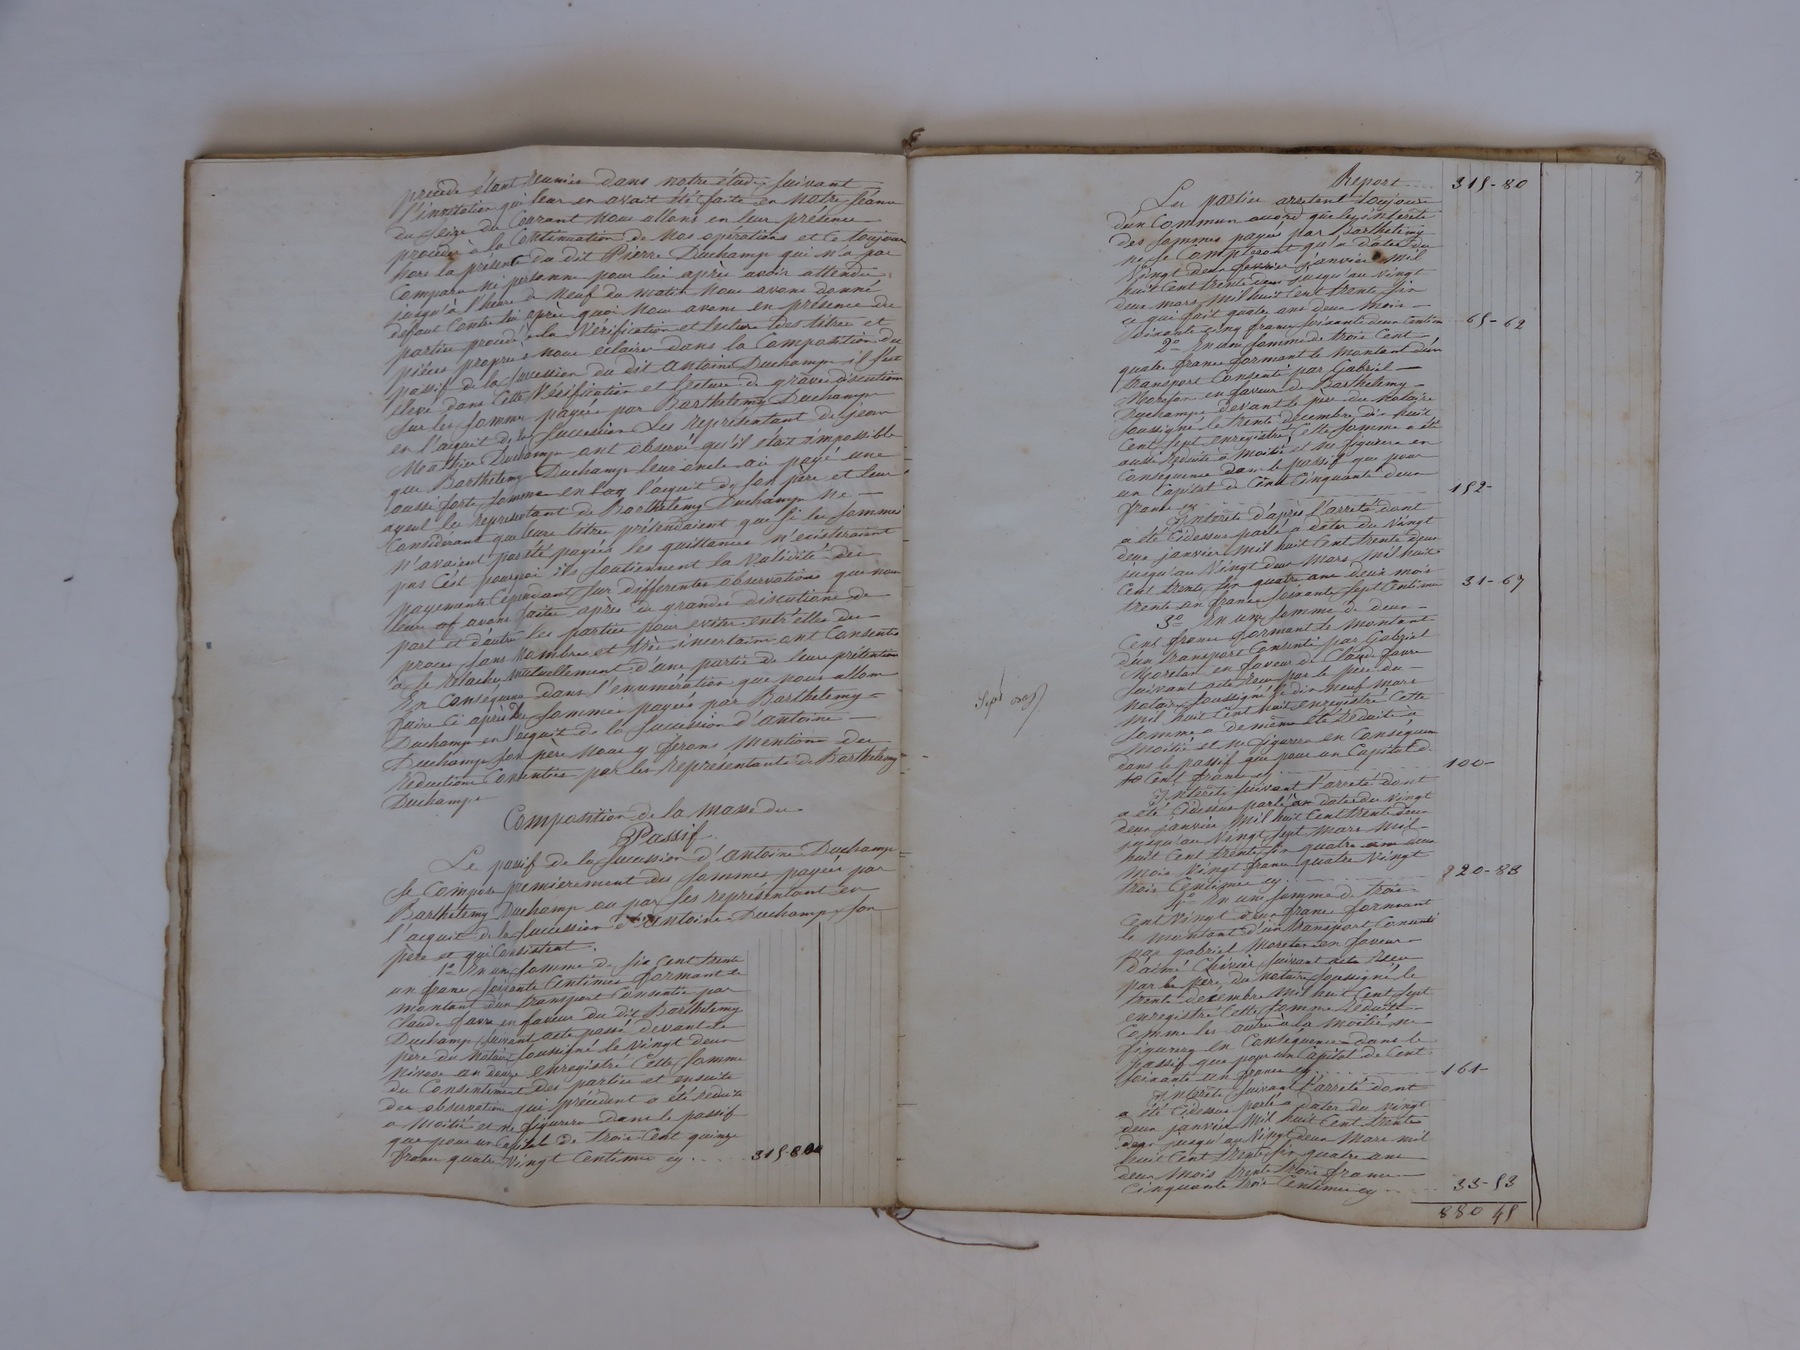 précède étant reunies dans notre étude suivant
l'invitation qui leur en avait été faite en notre séance
du seize du Courant nous allons en leur présence
procéder à la Continuation de nos opérations et ce toujours
hors la présence du dit Pierre Duchamp qui n'a pas
Comparu ni personne pour lui après avoir attendu
jusqu'à l'heure de neuf du matin nous avons donné
deffaut Contre lui après quoi nous avons en présence des
parties procédé à la Vérification et lecture des titres et
pièces propres à nous éclairer dans la Composition du
passif de la succession du dit Antoine Duchamp il s'est
élevé dans cette Vérification et lecture de graves discutions
sur les sommes payées par Barthelemy Duchamp
en l'acquit de la succession Les représentant de Jean
Mathieu Duchamp ont observé qu'il était impossible
que Barthelemy Duchamp leur oncle ait payé une
aussi forte somme en l'acquit de son père et leur
ayeul les représentant de Barthelemy Duchamp ne
Considérant que leurs titres prétendaient que si les sommes
n'avaient pas été payées les quittances n'existeraient
pas C'est pourquoi ils soutiennent la validité des
payements Cependant sur differentes observations que nous
leur avons faites après de grandes discutions de
part et d'autre les parties pour eviter entr'elles des
procès sans nombres et très incertains ont Consentis
à se relacher mutuellement d'une partie de leurs prétentions
En Conséquence dans l'enumération que nous allons
faire Ci après des sommes payées par Barthelemy
Duchamp en l'acquit de la succession d'antoine
Duchamp son père nous y ferons mention des
réductions Consenties par les représentants de Barthelemy
Duchamp
Composition de la masse du
Passif
Le passif de la succession d'antoine Duchamp
se Compose premierement des sommes payées par
Barthelemy Duchamp ou par ses représentant en
l'acquit de la succession d'antoine Duchamp son
père et qui Consistent.
1º En une somme de six cent trente
un francs soixante Centimes formant le
montant d'un transport Consentie par
Claude favre en faveur du dit Barthelemy
Duchamp suivant acte passé devant le
père du notaire soussigné le vingt deux
nivose an douze enregistré Cette somme
du Consentement des parties et ensuite
des observations qui précèdent a été réduite
a moitié et ne figurera dans le passif
que pour un Capital de trois Cent quinze
francs quatre Vingt Centimes cy .... 315-80
7
Report .... 315-80
Les parties arretent toujours
d'un Commun accord que les interêts
des sommes payées par Barthelemy
ne se Compteront qu'a dater du
Vingt deux janvier mil
huit Cent trente deux jusqu'au vingt
deux mars mil huit Cent trente six
ce qui fait quatre ans deux mois
soixante cinq francs soixante deux Centimes 65-62
2º En une somme de trois Cent
quatre francs formant le montant d'un
transport Consenti par Gabriel
Moretan en faveur de Barthelemy
Duchamp devant le père du notaire
soussigné le trente decembre dix huit
Cent sept enregistré Cette somme a été
aussi reduite a moitié et ne figurera en
Conséquence dans le passif que pour
un Capital de Cent Cinquante deux
francs cy 152-
Interêts d'après l'arreté dont
a été Cidessus parlé a dater du vingt
deux janvier mil huit Cent trente deux
jusqu'au Vingt deux Mars mil huit
Cent trente six quatre ans deux mois
trente un francs soixante sept Centimes 31-67
3º En une somme de deux
Cent francs formant le montant
d'un transport Consenti par Gabriel
Moretan en faveur de Claude favre
suivant acte reçu par le père du
notaire soussigné le dix neuf mars
mil huit Cent huit enregistré Cette
somme a de même été réduite a
moitié et ne figurera en Conséquence
dans le passif que pour un Capital de
Cent francs cy 100-
Interêts suivant l'arreté dont
a été Cidessus parlé a dater du vingt
deux janvier mil huit Cent trente deux
jusqu'au Vingt sept Mars mil
huit Cent trente six quatre ans deux
Mois Vingt francs quatre Vingt
trois Centimes cy 20-83
4º En une somme de trois
Cent Vingt deux francs formant
le montant d'un transport Consenti
par gabriel Moretan en faveur
d'aimé Chivier suivant acte reçu
par le père du notaire soussigné le
trente decembre mil huit Cent sept
enregistré Cette somme réduite
Comme les autres a la Moitié ne
figurera en Conséquence dans le
passif que pour un Capital de Cent
soixante un francs cy 161-
Interêts suivant l'arreté dont
a été Cidessus parlé a dater du vingt
deux janvier mil huit Cent trente
deux jusqu'au Vingt deux Mars mil
huit Cent trente six quatre ans
deux Mois trente trois francs
cinquante trois Centimes cy 33-53
880 45